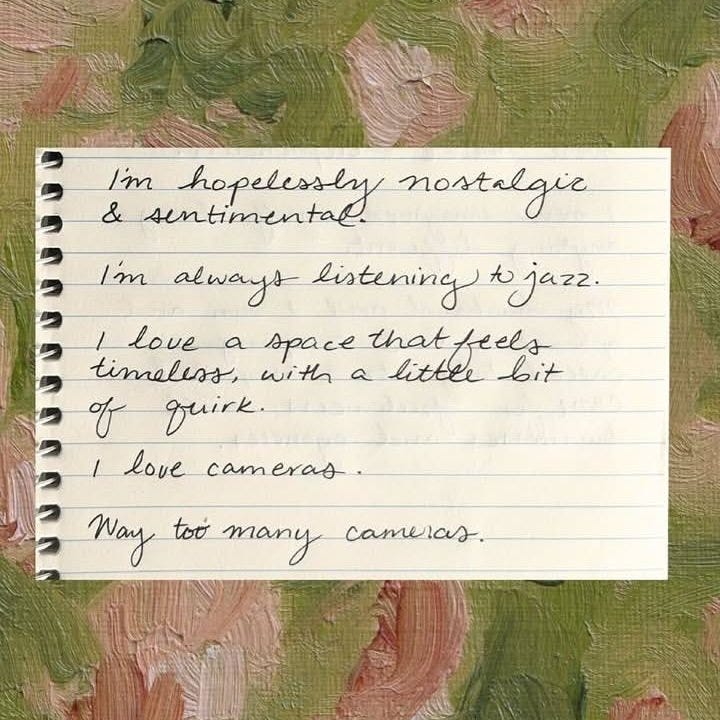 I'm hopelessly nostalgic
& sentimental.
I'm always listening to jazz.
I love a space that feels
timeless, with a little bit
of quirk.
I love cameras.
Way too many cameras.